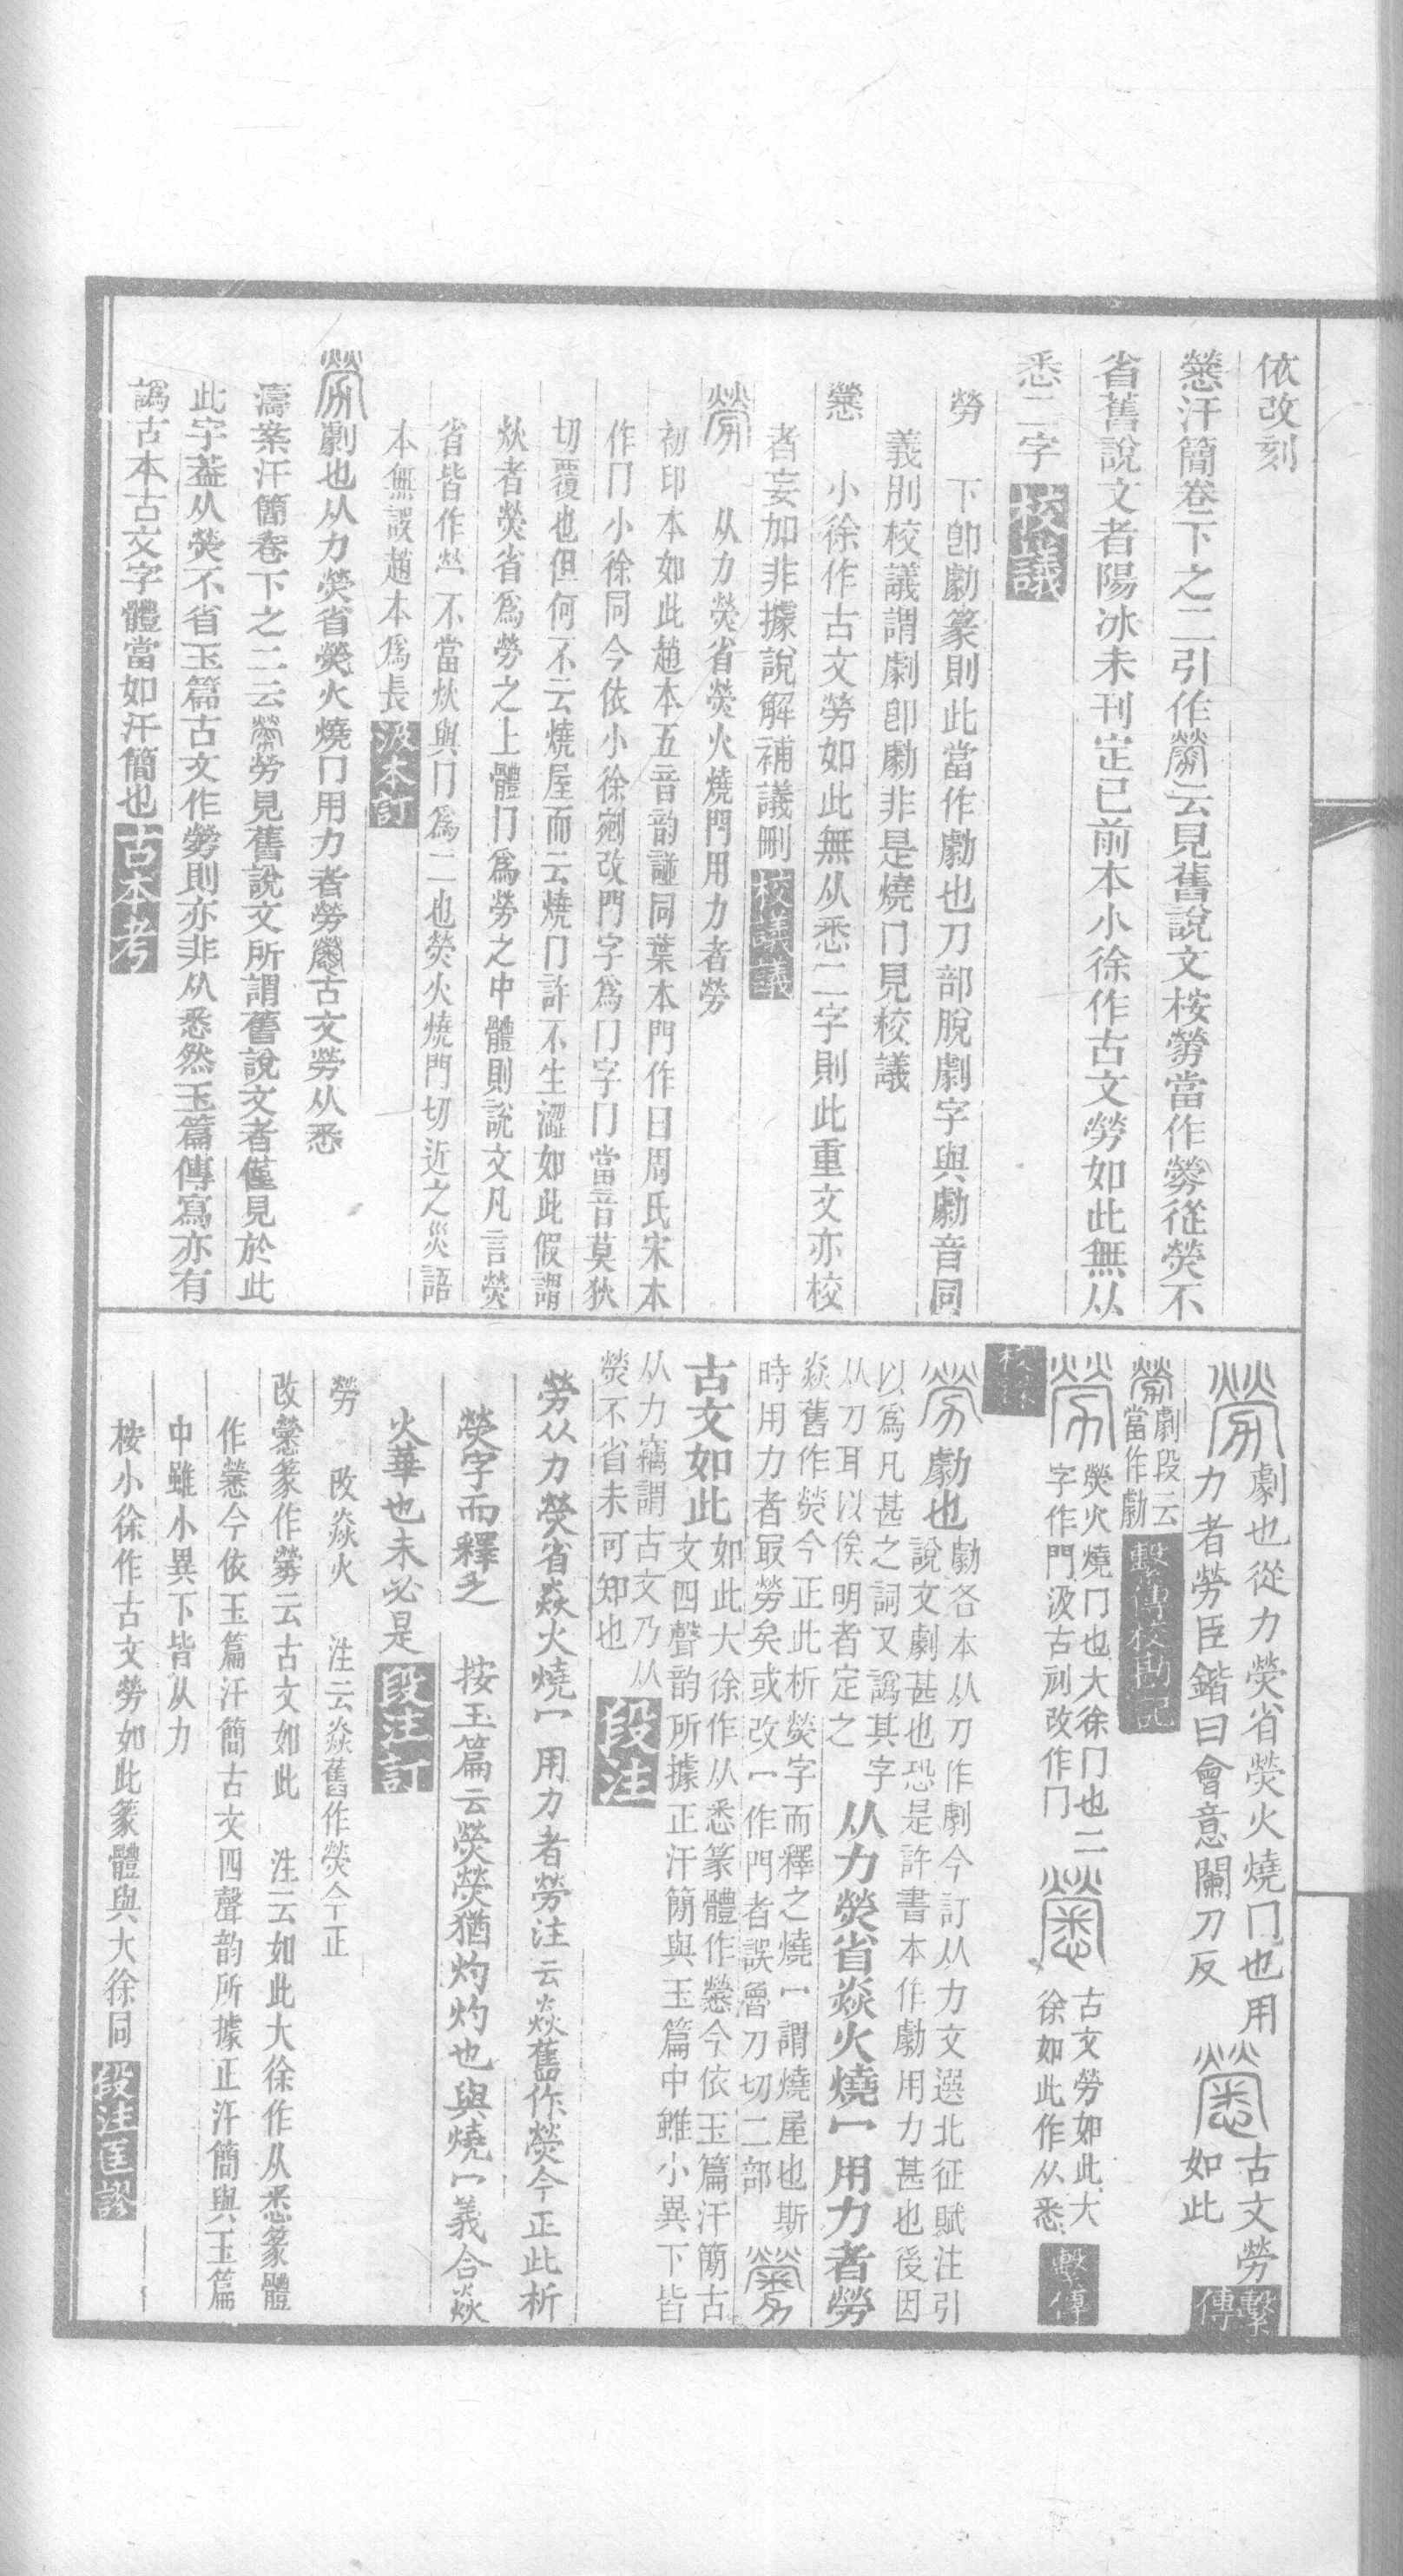 依改刻
𢥒汗簡卷下之二引作云見舊說文桉勞當作從熒不
省舊說文者陽冰未刊定已前本小徐作古文勞如此無从
悉二字 校議
勞 下卽劇篆則此當作勮也刀部脫劇字與勮音同
義別校議謂劇卽勮非是燒冂見校議
𢥒 小徐作古文勞如此無从悉二字則此重文亦校
者妄加非據說解補議刪 校議議
从力熒省熒火燒門用力者勞
初印本如此趙本五音韵譜同葉本門作日周氏宋本
作冂小徐同今依小徐剜改門字爲冂字冂當音莫狄
切覆也但何不云燒屋而云燒冂許不生澀如此假謂
炏者熒省爲勞之上體冂爲勞之中體則說文凡言熒
省皆作𤇾不當炏與冂爲二也熒火燒門切近之災語
本無誤趙本爲長 汲本訂
劇也从力熒省熒火燒冂用力者勞古文勞从悉
濤案汗簡卷下之二云勞見舊說文所謂舊說文者僅見於此
此字葢从熒不省玉篇古文作則亦非从悉然玉篇傳寫亦有
譌古本古文字體當如汗簡也 古本考
劇也從力熒省熒火燒冂也用
力者勞臣鍇曰會意闌刀反
古文勞
如此 繫傳
劇段云
當作勮 繫傳校勘記
熒火燒冂也大徐冂也二
字作門汲古刓改作冂
古文勞如此大
徐如此作从悉 繫傳
校
勮也
勮各本从刀作劇今訂从力文選北征賦注引
說文劇甚也恐是許書本作勮用力甚也後因
以爲凡甚之詞又譌其字
从刀耳以俟明者定之
从力熒省焱火燒冖用力者勞
焱舊作熒今正此析熒字而釋之燒冖謂燒屋也斯
時用力者冣勞矣或改冖作門者誤魯刀切二部
古文如此
如此大徐作从悉篆體作𢥒今依玉篇汗簡古
文四聲韵所據正汗簡與玉篇中雖小異下皆
从力竊謂古文乃从
熒不省未可知也 段注
勞从力熒省焱火燒冖用力者勞注云焱舊作熒今正此析
熒字而釋之 按玉篇云熒熒猶灼灼也與燒冖義合焱
火華也未必是 段注訂
勞 改焱火 注云焱舊作熒今正
改𢥒篆作云古文如此 注云如此大徐作从悉篆體
作𢥒今依玉篇汗簡古文四聲韵所據正汗簡與玉篇
中雖小異下皆从力
桉小徐作古文勞如此篆體與大徐同 段注匡謬